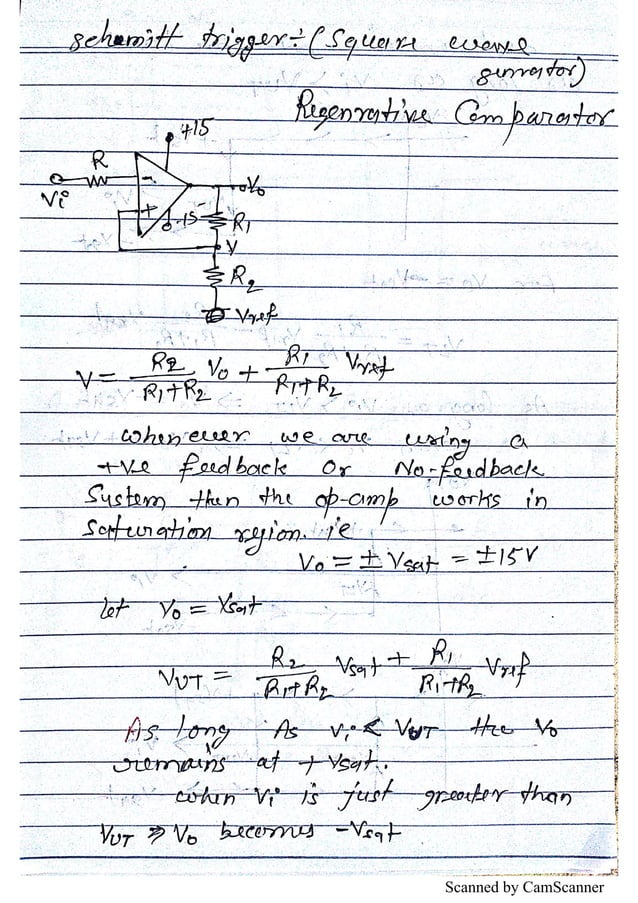 schemitt trigger ÷ (Square wave
gunrator)
Regenrative Comparator
+15
R
Vi
-
+
-15
Vo
R1
V
R2
Vref
V = R2/(R1+R2) Vo + R1/(R1+R2) Vref
whenever we are using a
+ve feedback or No-feedback
System then the op-amp works in
Saturation region. ie
Vo = ± Vsat = ±15V
let Vo = Vsat
VUT = R2/(R1+R2) Vsat + R1/(R1+R2) Vref
As long As Vi < VUT the Vo
remains at + Vsat.
when Vi is just greater than
VUT ⇒ Vo becomes -Vsat
Scanned by CamScanner